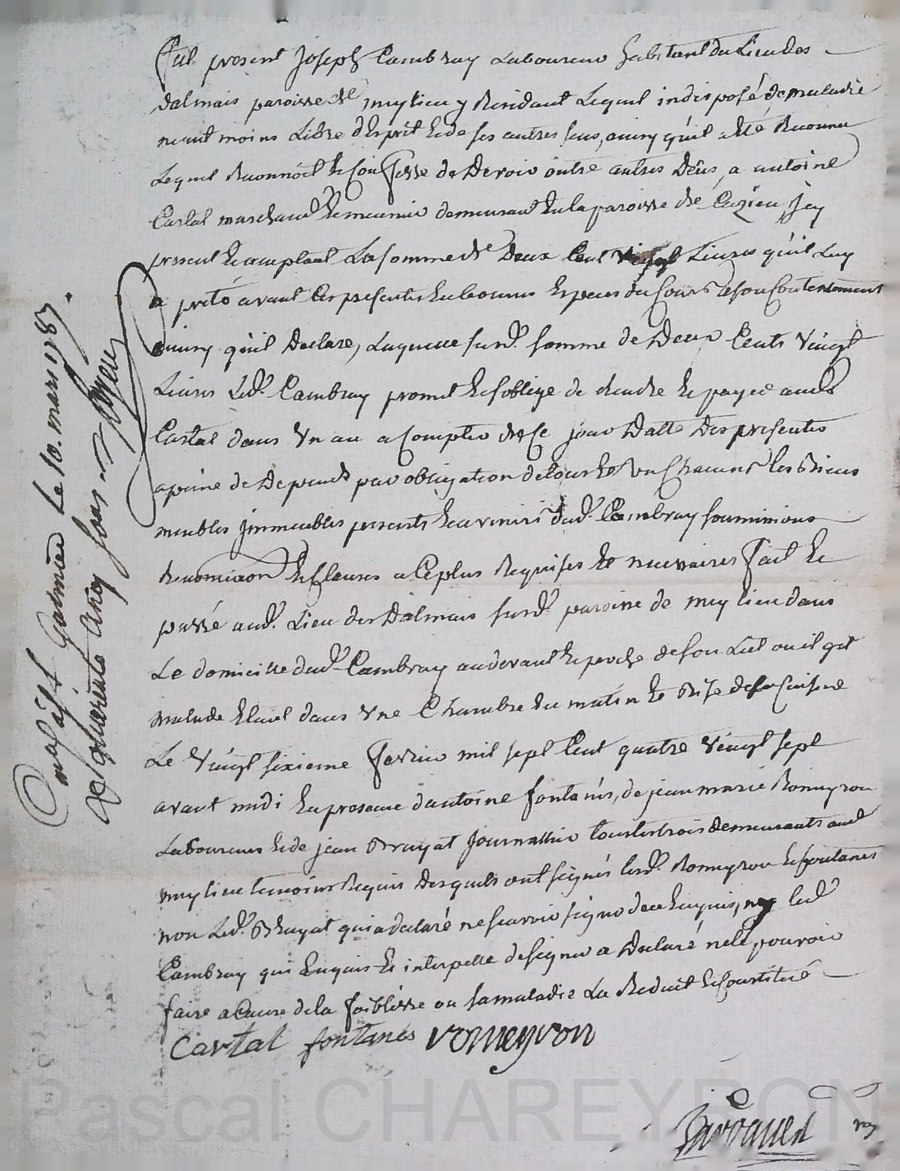 fut present Joseph Cambray Laboureur habitant du Lieu des
dalmais paroisse de mylieu y Residant Lequel indisposé de maladie
neant moins Libre d'Esprit Et de ses autres sens, ainsy qu'il a été Reconnu
Lequel Reconnoit Et Confesse de Devoir outre autres Deus, a antoine
Cartal marchand Et meunier demeurant En la paroisse de Cuzieu, Jcy
present Et acceptant La somme de Deux Cent vingt Livres qu'il Luy
a preté avant Les presentes En bonnes Especes du Cours a son Contentement
ainsy qu'il Declare, Laquelle susd. somme de Deux Cents vingt
Livres Led. Cambray promet Et s'oblige de Rendre Et payer aud.
Cartal dans Un an a Compter de Ce jour Datte Des presentes
a peine de Depends par obligation de tous Et un Chacuns Les Biens
meubles jmmeubles presents Et avenirs dud. Cambray soumissions
Renonciation Et Clauses a Ce plus Requises Et necessaires fait Et
passé aud. Lieu des Dalmais susd. paroisse de mylieu dans
Le domicille dud. Cambray au devant Et proche de son Lit ou il git
malade Etant dans Une Chambre du matin Et Bise de sa Cuisine
Le Vingt sixieme fevrier mil sept Cent quatre Vingt sept
avant midi En presence d'antoine fontanés, de jean marie Romeyron
Laboureurs Et de jean Bruyat journallier tous les trois demeurants aud.
mylieu temoins Requis Desquels ont signés Lesd. Romeyron Et fontanés
non Led. Bruyat qui a declaré ne scavoir signer de ce Enquis, ny Led.
Cambray qui Enquis Et interpellé de signer a Declaré ne Le pouvoir
faire a Cause de la foiblesse ou sa maladie La Reduit Et Constitué
Cartal fontanés romeyron
Controllé a St Galmier Le 10. mars 1787.
Quarante Cinq sous
Pascal CHAREYRON